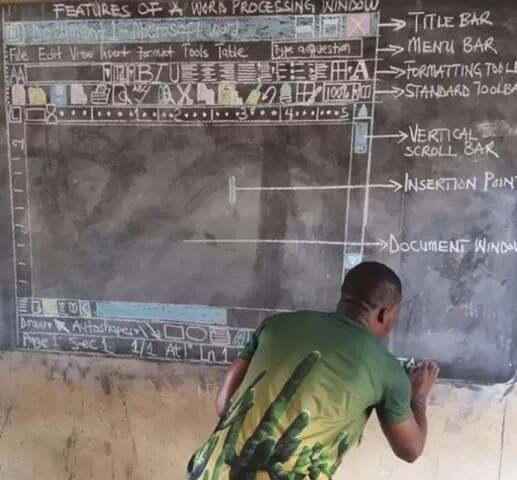 FEATURES OF A WORD PROCESSING WINDOW
Document 1 - Microsoft word
TITLE BAR
File Edit View Insert Format Tools Table
Type a question
MENU BAR
AA
12
B I U
A
FORMATTING TOOLB
ABC
100%
STANDARD TOOLBA
1 2 3 4 5
VERTICAL
SCROLL BAR
INSERTION POINT
DOCUMENT WINDOW
Draw Autoshapes
Page 1 Sec 1 1/1 At Ln 1
TA